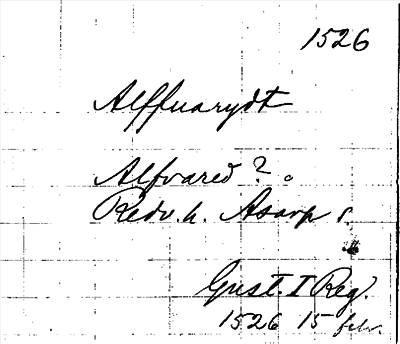 1526
Alffuarydt
Alfvared ?
Redv. h. Asarp s.
Gust. I Reg.
1526 15 febr.